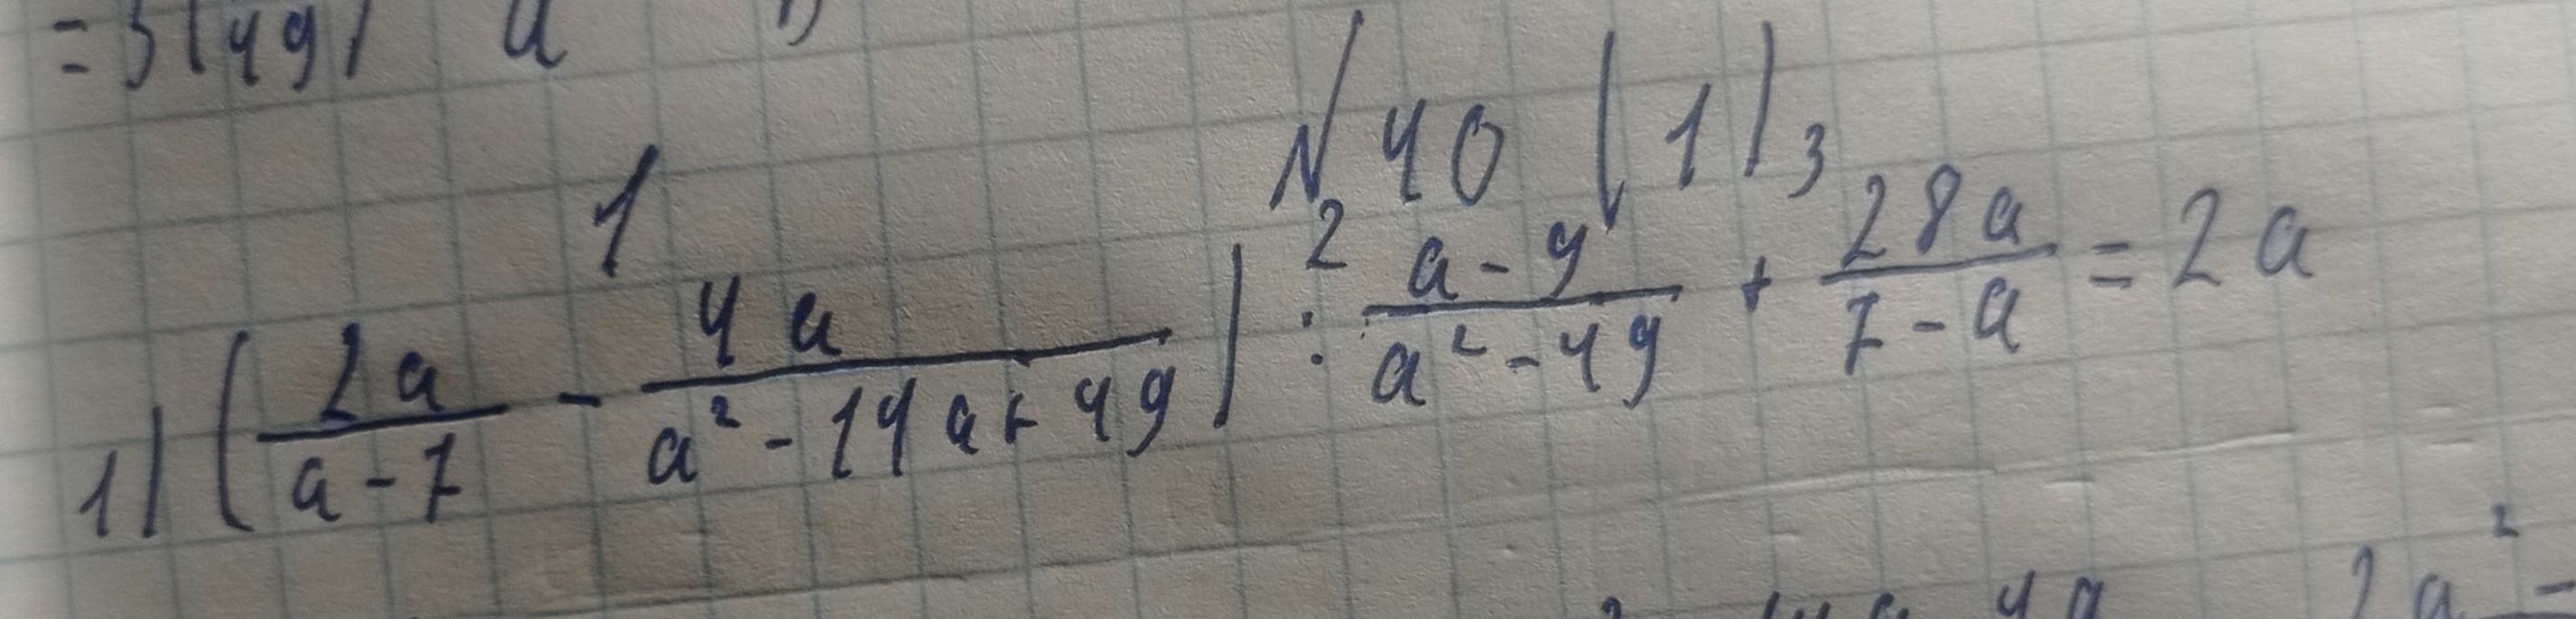 = 3(49) a
№ 40 (1)
1 2 3
1) (2a/(a-7) - 4a/(a²-14a+49)) : (a-9)/(a²-49) + 28a/(7-a) = 2a
4a 2a² -